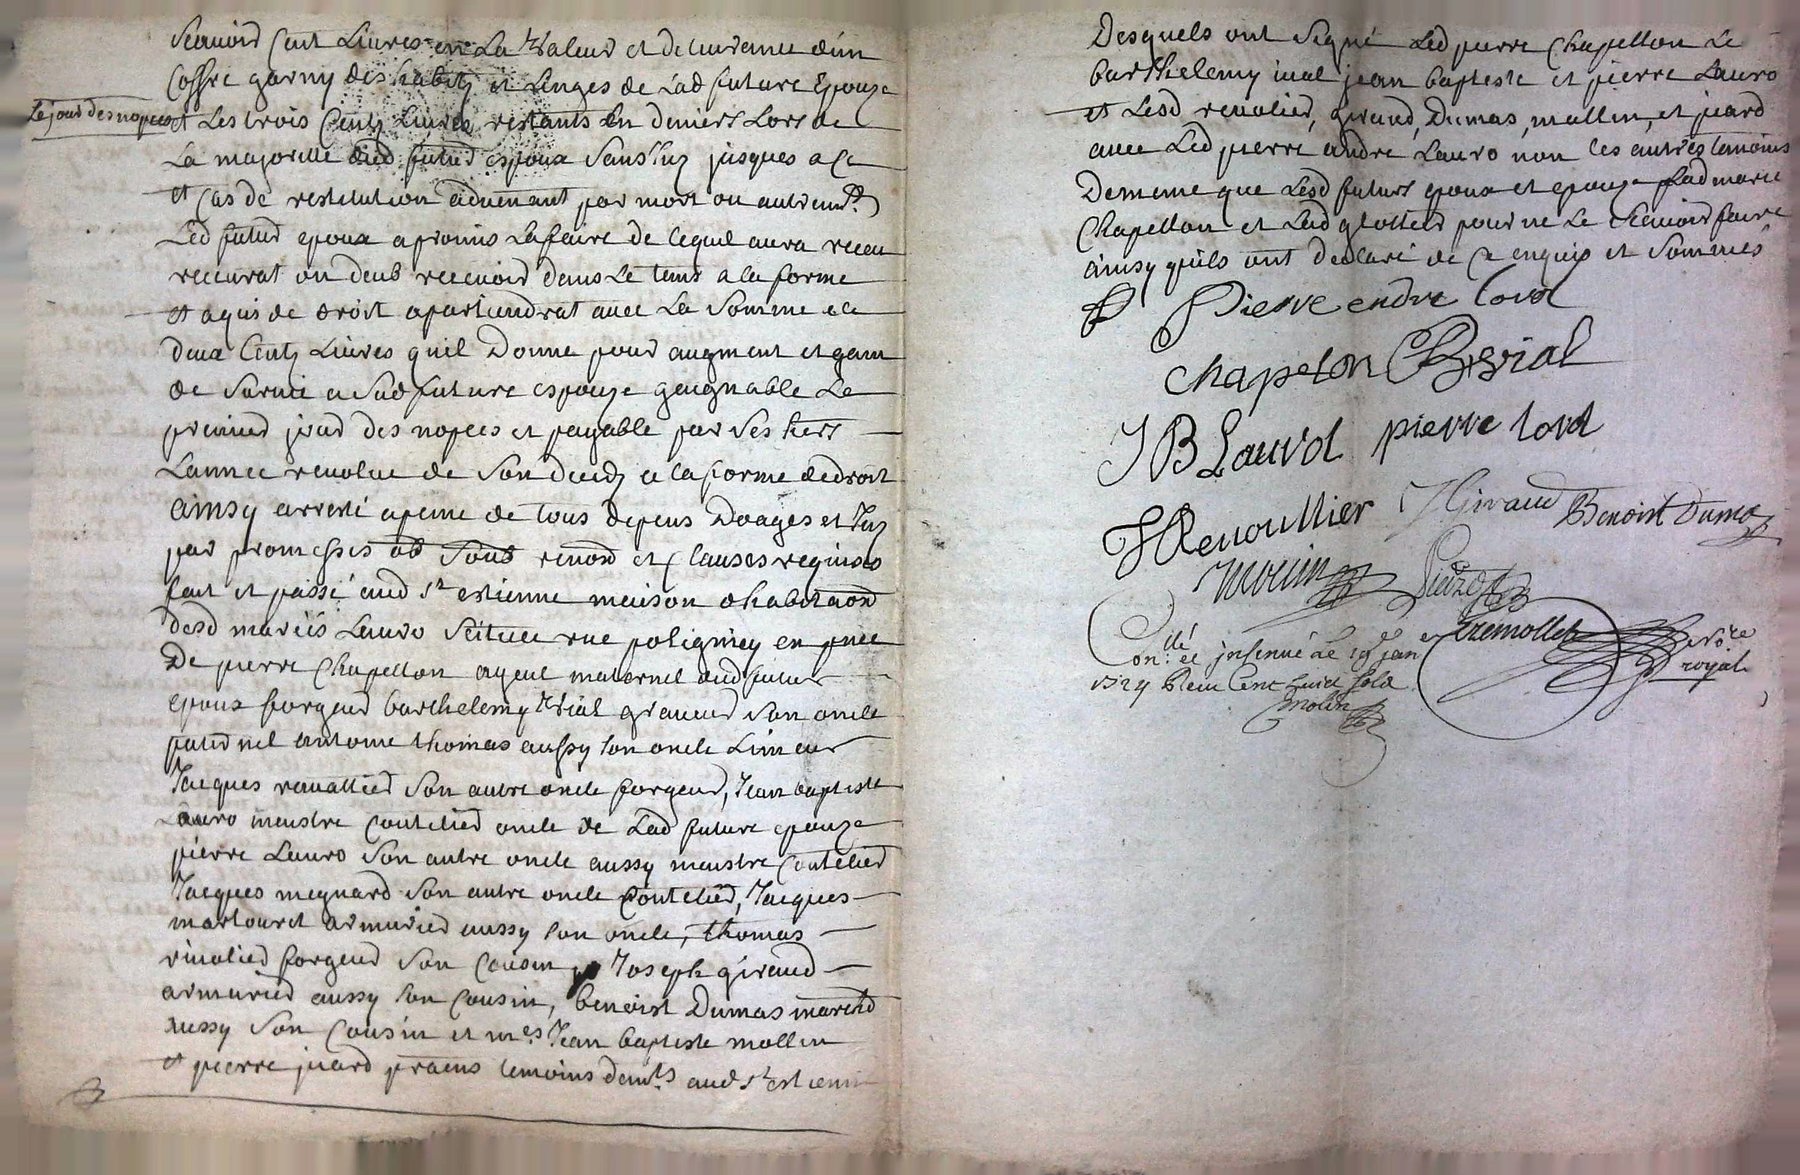 Scauoir Cent Liures en La Valeur et deliurance d'un
Coffre garny des habits et Linges de Lad future Epouze
Le jour des nopces
et Les trois Cents Liures restants En deniers Lors de
La majorité dud futur espoux sans Jnz jusques a Ce
et Cas de restitution aduenant par mort ou autremt
Led futur epoux a promis La faire de Lequel aura receu
receurat ou deub receuoir dans Le tems a la forme
et a qui de droit apartiendrat auec La Somme de
deux Cents Liures qu'il Donne pour augment et gain
de Suruie a Sad future espouze gaignable Le
premier jour des nopces et payable par Ses hers
Lannee reuolue de Son deceds a la forme de droit
ainsy arresté a peine de tous depens Domages et Jnz
par promesses ob Soub renon et Clauses requises
fait et passé aud St estienne maison d'habitaon
desd mariés Lauro Scituée rue polignay en pnce
De pierre Chapellon ayeul maternel dud futur
epoux forgeur barthelemy Vial graueur Son oncle
paternel antoine thomas aussy Son oncle Limeur
Jacques reuollier Son autre oncle forgeur, Jean baptiste
Lauro meustre Coutelier oncle de Lad future epouze
pierre Lauro Son autre oncle aussy meustre Coutelier
Jacques meynard Son autre oncle Coutelier, Jacques
martouret armurier aussy Son oncle, thomas
riuolier forgeur Son Cousin Joseph giraud
armurier aussy Son Cousin, benoist Dumas marchd
aussy Son Cousin et mes Jean baptiste mollin
et pierre juard praens temoins demts aud St estienne
Desquels ont Signé Led pierre Chapellon Le
barthelemy vial jean baptiste et pierre Lauro
et Lesd reuolier, giraud, Dumas, mollin, et juard
auec Led pierre andre Lauro non les autres temoins
De meme que Lesd futurs epoux et epouze Lad marie
Chapellon et Lad glotters pour ne Le Scauoir faire
ainsy quils ont declaré de Ce enquis et Sommés
Pierre endre lorol
Chapelon B Vial
J B Laurol pierre lorol
J Reuoullier J Giraud Benoist Dumas
Molin
Tremollet
Nore
royal
Collé
on. et insinué Le 19 Jan
1724 Receu Cent huict Sols
Molin